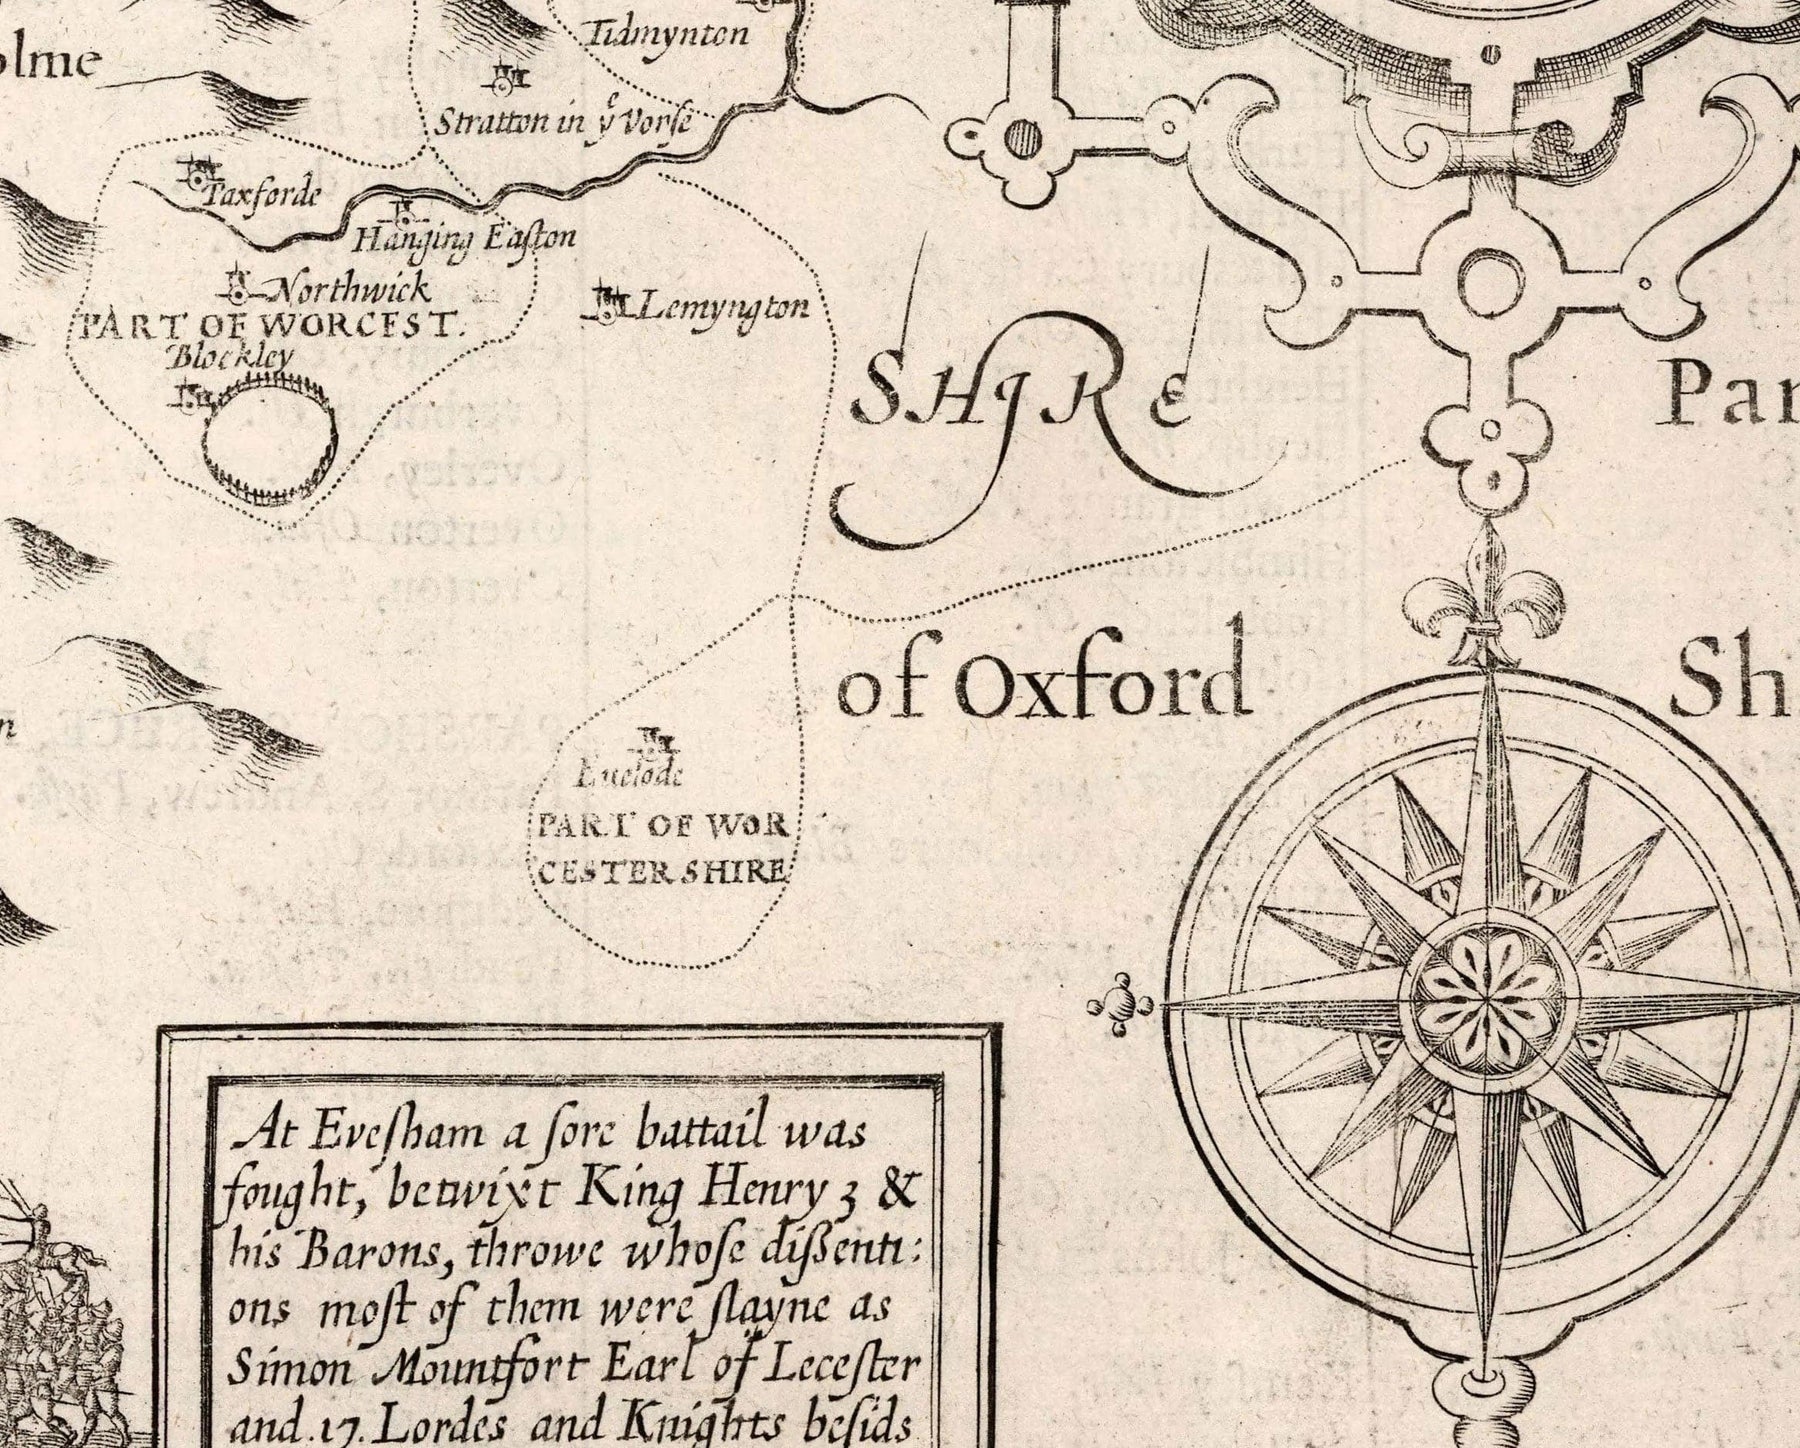 olme
Tidmynton
Stratton in yͤ Vorse
Taxforde
Hanging Easton
Northwick
PART OF WORCEST.
Blockley
Lemyngton
SHIRE
Par
of Oxford
Sh
n
Euelode
PART OF WOR
CESTER SHIRE
At Eveſham a ſore battail was
fought, betwixt King Henry 3 &
his Barons, throwe whoſe diſſenti:
ons moſt of them were ſlayne as
Simon Mountfort Earl of Leceſter
and .17. Lordes and Knights beſids